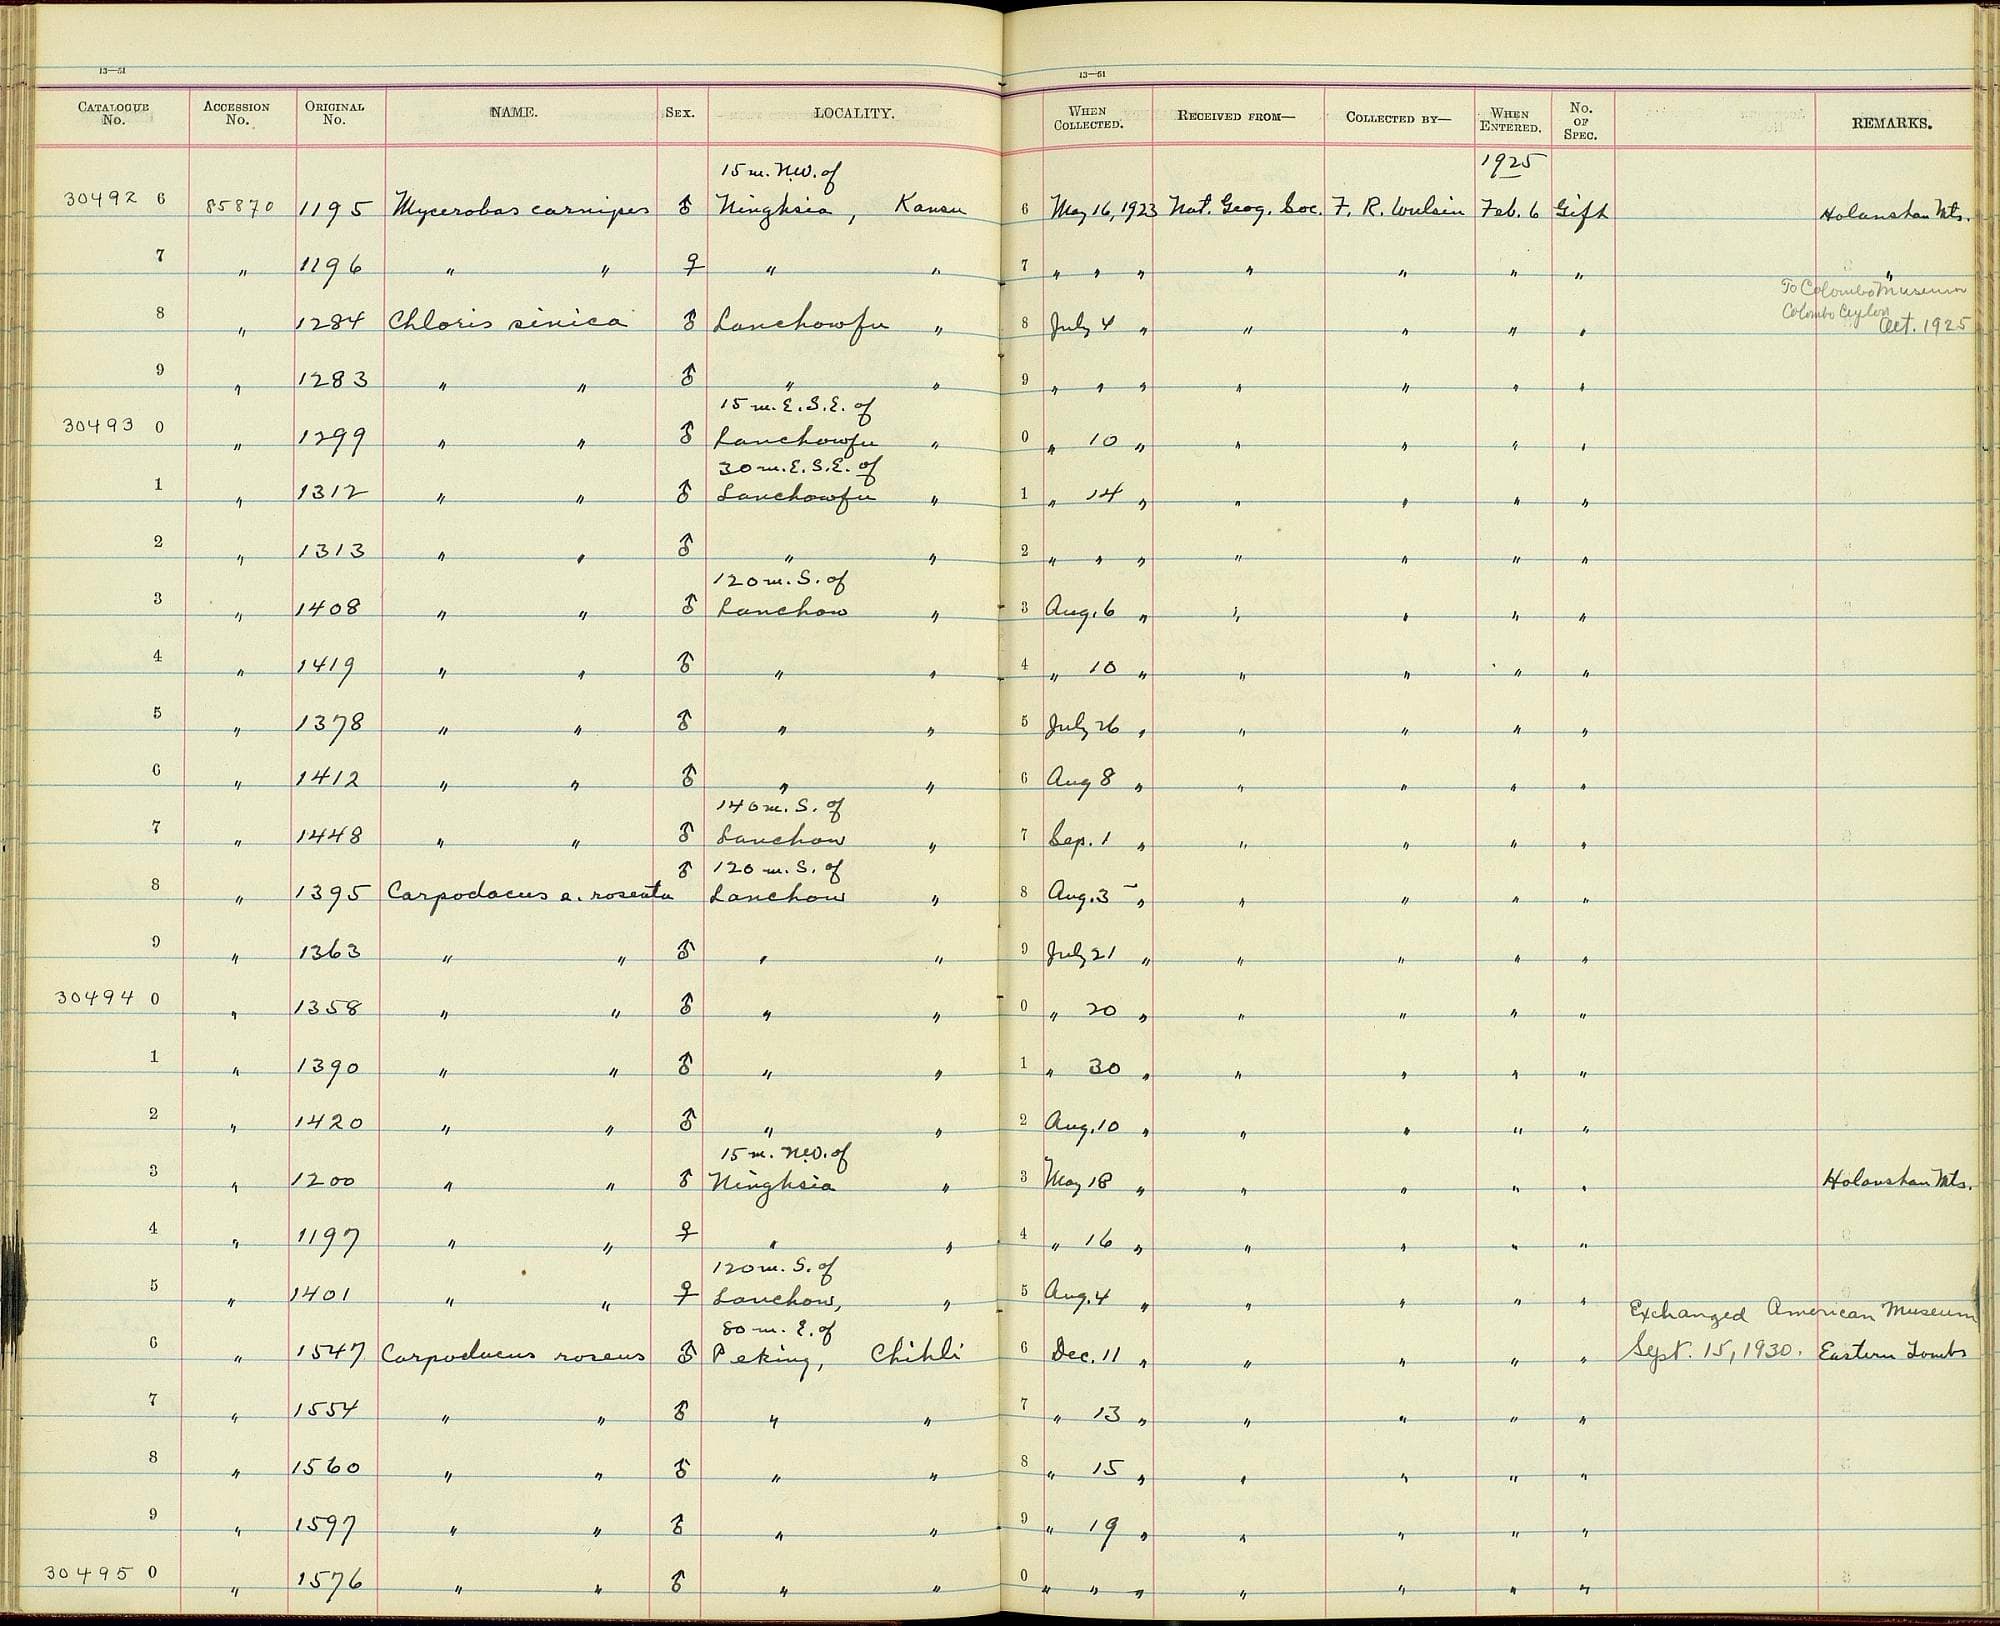 13—51
13—51
CATALOGUE No. ACCESSION No. ORIGINAL No. NAME. SEX. LOCALITY. WHEN COLLECTED. RECEIVED FROM— COLLECTED BY— WHEN ENTERED. No. OF SPEC. REMARKS.
15 m. N.W. of 1925
30492 6 85870 1195 Mycerobas carnipes ♂ Ninghsia, Kansu 6 May 16, 1923 Nat. Geog. Soc. F. R. Wulsin Feb. 6 Gift Holanshan Mts.
7 " 1196 " " ♀ " " 7 " " " " " " " "
To Colombo Museum
Colombo Ceylon
8 " 1284 Chloris sinica ♂ Lanchowfu " 8 July 4 " " " " " Oct. 1925
9 " 1283 " " ♂ " " 9 " " " " " " "
15 m. E.S.E. of
30493 0 " 1299 " " ♂ Lanchowfu " 0 " 10 " " " " "
30 m. E.S.E. of
1 " 1312 " " ♂ Lanchowfu " 1 " 14 " " " " "
2 " 1313 " " ♂ " " 2 " " " " " " "
120 m. S. of
3 " 1408 " " ♂ Lanchow " 3 Aug. 6 " " " " "
4 " 1419 " " ♂ " " 4 " 10 " " " " "
5 " 1378 " " ♂ " " 5 July 26 " " " " "
6 " 1412 " " ♂ " " 6 Aug 8 " " " " "
140 m. S. of
7 " 1448 " " ♂ Lanchow " 7 Sep. 1 " " " " "
120 m. S. of
8 " 1395 Carpodacus e. roseata ♂ Lanchow " 8 Aug. 3 " " " " "
9 " 1363 " " ♂ " " 9 July 21 " " " " "
30494 0 " 1358 " " ♂ " " 0 " 20 " " " " "
1 " 1390 " " ♂ " " 1 " 30 " " " " "
2 " 1420 " " ♂ " " 2 Aug. 10 " " " " "
15 m. N.W. of
3 " 1200 " " ♂ Ninghsia " 3 May 18 " " " " " Holanshan Mts.
4 " 1197 " " ♀ " " 4 " 16 " " " " "
120 m. S. of
5 " 1401 " " ♀ Lanchow, " 5 Aug. 4 " " " " "
80 m. E. of Exchanged American Museum
6 " 1547 Carpodacus roseus ♂ Peking, Chihli 6 Dec. 11 " " " " " Sept. 15, 1930. Eastern Tombs
7 " 1554 " " ♂ " " 7 " 13 " " " " "
8 " 1560 " " ♂ " " 8 " 15 " " " " "
9 " 1597 " " ♂ " " 9 " 19 " " " " "
30495 0 " 1576 " " ♂ " " 0 " " " " " " "